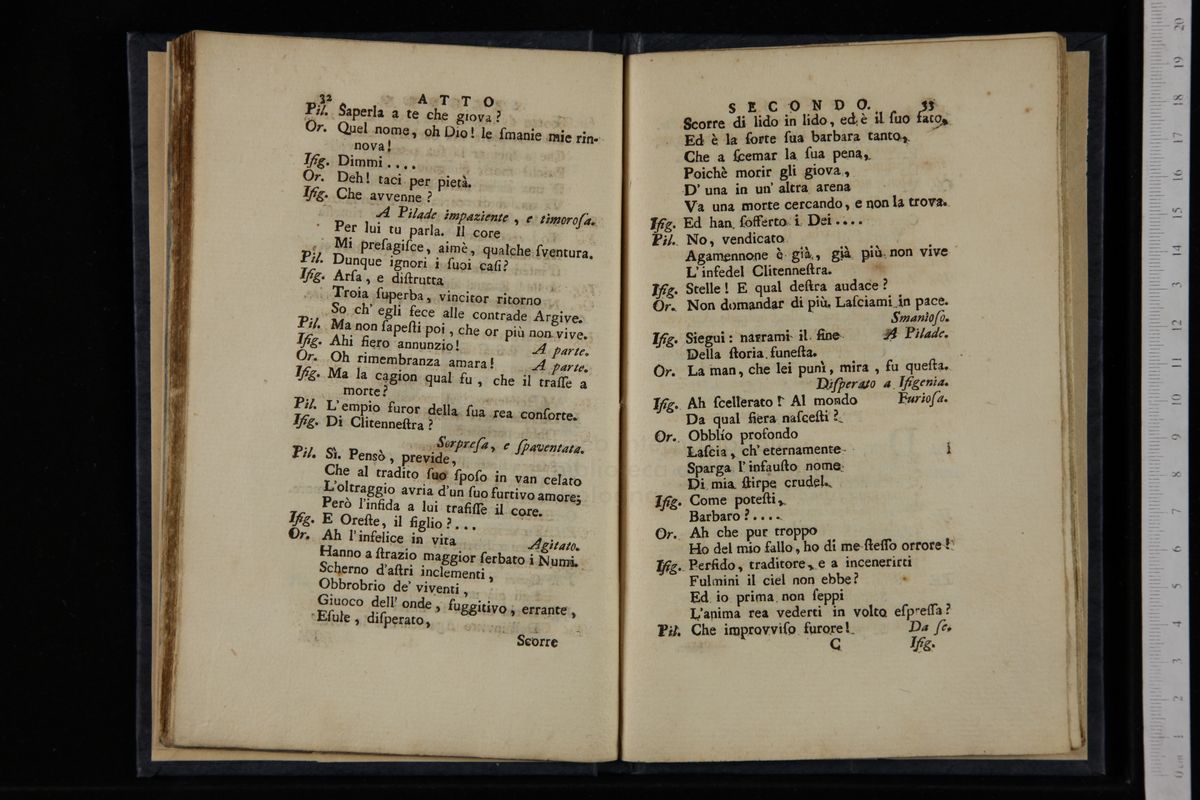 32 ATTO
Pil. Saperla a te che giova?
Or. Quel nome, oh Dio! le ſmanie mie rin-
nova!
Ifig. Dimmi....
Or. Deh! taci per pietà.
Ifig. Che avvenne?
A Pilade impaziente, e timoroſa.
Per lui tu parla. Il core
Mi preſagiſce, aimè, qualche ſventura.
Pil. Dunque ignori i ſuoi caſi?
Ifig. Arſa, e diſtrutta
Troia ſuperba, vincitor ritorno
So ch' egli fece alle contrade Argive.
Pil. Ma non ſapeſti poi, che or più non vive.
Ifig. Ahi fiero annunzio! A parte.
Or. Oh rimembranza amara! A parte.
Ifig. Ma la cagion qual fu, che il traſſe a
morte?
Pil. L'empio furor della ſua rea conſorte.
Ifig. Di Clitenneſtra?
Sorpreſa, e ſpaventata.
Pil. Sì. Pensò, previde,
Che al tradito ſuo ſpoſo in van celato
L'oltraggio avria d'un ſuo furtivo amore;
Però l'infida a lui trafiſſe il core.
Ifig. E Oreſte, il figlio?...
Or. Ah l'infelice in vita Agitato.
Hanno a ſtrazio maggior ſerbato i Numi.
Scherno d'aſtri inclementi,
Obbrobrio de' viventi,
Giuoco dell' onde, fuggitivo, errante,
Eſule, diſperato,
Scorre
SECONDO. 33
Scorre di lido in lido, ed è il ſuo fato,
Ed è la ſorte ſua barbara tanto,
Che a ſcemar la ſua pena,
Poichè morir gli giova,
D' una in un' altra arena
Va una morte cercando, e non la trova.
Ifig. Ed han ſofferto i Dei....
Pil. No, vendicato
Agamennone è già, già più non vive
L'infedel Clitenneſtra.
Ifig. Stelle! E qual deſtra audace?
Or. Non domandar di più. Laſciami in pace.
Smanioſo.
Ifig. Siegui: narrami il fine A Pilade.
Della ſtoria funeſta.
Or. La man, che lei punì, mira, fu queſta.
Diſperato a Ifigenia.
Ifig. Ah ſcellerato! Al mondo Furioſa.
Da qual fiera naſceſti?
Or. Obblio profondo
Laſcia, ch'eternamente
Sparga l'infauſto nome
Di mia ſtirpe crudel.
Ifig. Come poteſti,
Barbaro?....
Or. Ah che pur troppo
Ho del mio fallo, ho di me ſteſſo orrore!
Ifig. Perfido, traditore, e a incenerirti
Fulmini il ciel non ebbe?
Ed io prima non ſeppi
L'anima rea vederti in volto eſpreſſa?
Pil. Che improvviſo furore! Da ſe.
C Ifig.
20
19
18
17
16
15
14
13
12
11
10
9
8
7
6
5
4
3
2
1
0 cm